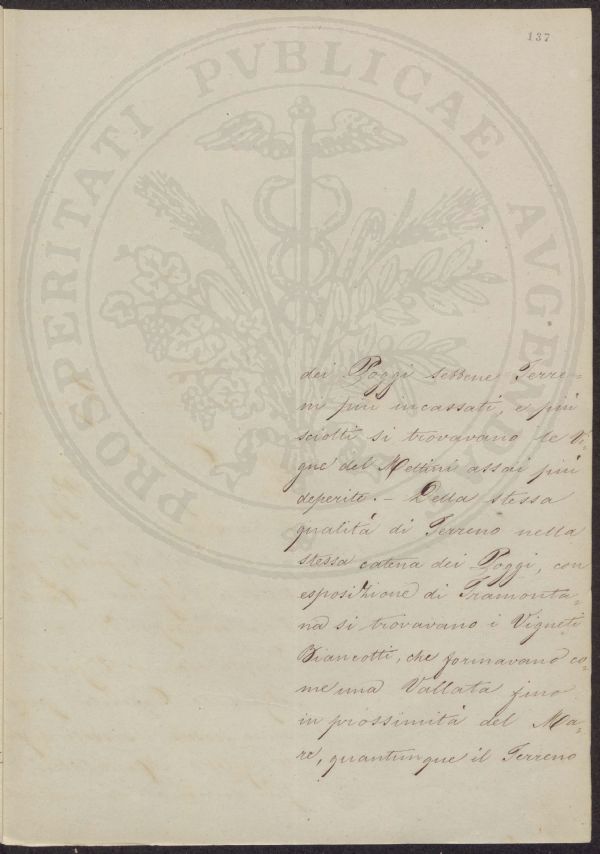 137
PROSPERITATI PVBLICAE AVGENDAE
dei Poggi sebbene Terre-
ni più incassati, e più
sciolti si trovavano le Vi-
gne del Mellini assai più
deperite. - Della stessa
qualità di Terreno nella
stessa catena dei Poggi, con
esposizione di Tramonta-
na si trovavano i Vigneti
Biancotti, che formavano co-
me una Vallata fino
in prossimità del Ma-
re, quantunque il Terreno